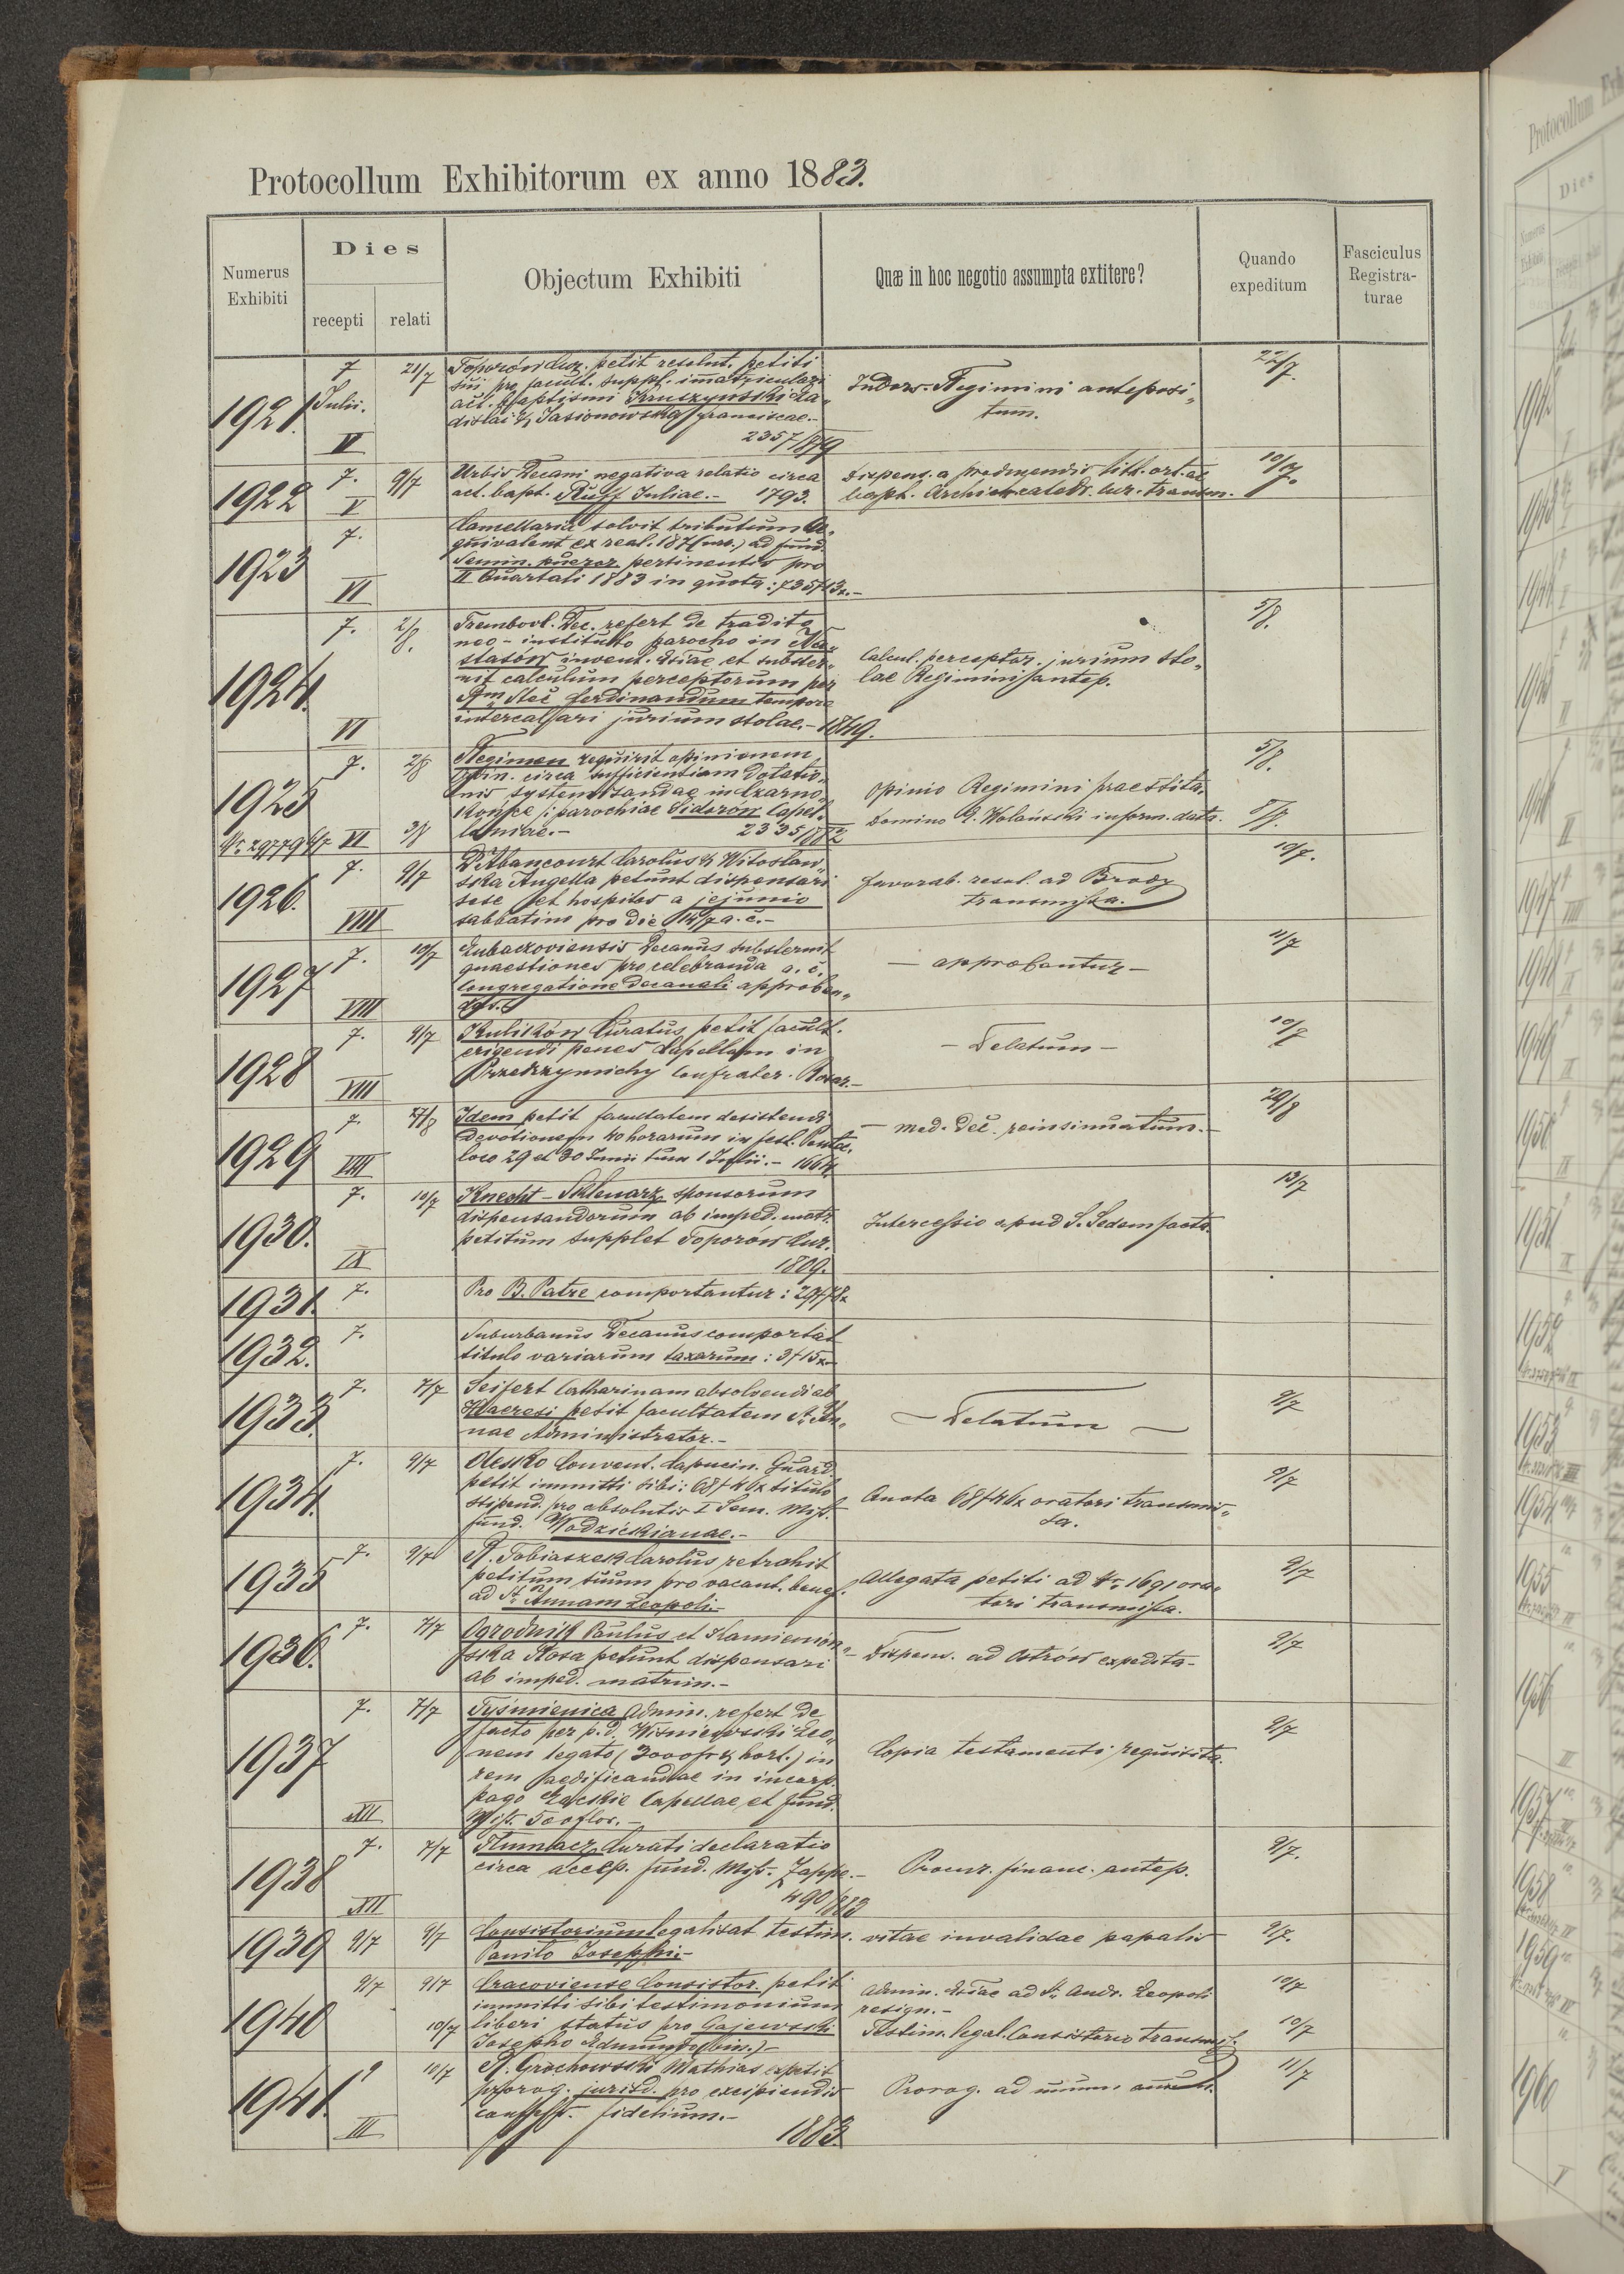 Protocollum Exhibitorum ex anno 1883.
Numerus Exhibiti
Dies
recepti
relati
Objectum Exhibiti
Quæ in hoc negotio assumpta extitere?
Quando expeditum
Fasciculus Registra-
turae
1921. 7 Julii. IV 21/7
Toporów Cur. petit resolut. petiti
sui pro facult. suppl. immatriculari
act. Baptismi Kruszynski La„
dislai & Jasionowska Franciscae.-
2357/879
Indors. Regimini anteposi„
tum.
22/7.
1922 7. V 9/7
Urbis Decani negativa relatio circa
act. bapt. Ruff Juliae.- 1793.
Dispens. a producendis litt. ort. ac
bapt. Archicathedr. Cur. transm.
10/7.
1923 7. VI
Camellaria solvit tributum Ae„
quivalent ex real. 187 (urb.) ad fund.
Semin. pueror. pertinentis pro
II Quartali 1883 in quota: 735f 13x.-
1924. 7. VI 2/8.
Trembovl. Dec. refert de tradito
neo-instituto parocho in Na„
stasów invent. Eccliae et subster„
nit calculum perceptorum per
Ferdinandum tempore
intercalari jurium stolae.- 1849.
Calcul. perceptor. jurium sto„
lae Regimini antep.
5/8.
1925 7. VI 2/8
Regimen requirit opinionem
Ordin. circa sufficientiam dotatio„
nis systemisandae in Czarno„
Konce /: parochiae Sidorów Capel„
laniae.- 2335/882
3/8
Opinio Regimini praestita.
Domino A. Wolański inform. data.
5/8.
5/8.
1926. 7. VIII 9/7
D'Abancourt Carolus & Witosław„
ska Angella petunt dispensari
sese et hospites a jejunio
sabbatino pro die 14/7 a. c.-
favorab. resol. ad Brody
transmissa.
10/7.
1927 7. VIII 10/7
Lubaczoviensis Decanus substernit
quaestiones pro celebranda a. c.
Congregatione Decanali approban„
das.
- approbantur -
11/7
1928 7. VIII 9/7
Kulików Curatus petit facult.
erigendi penes Capellam in
Przedrzymichy Confrater. Rosar.-
- Delatum -
10/7
1929 7. VIII 27/8
Idem petit facultatem desistendi
devotionem 40 horarum in fest. Pentec.
loco 29 et 30 Junii tum 1 Julii.- 1664
- med. Dec. reinsinuatum.-
29/8
1930. 7. IX 10/7
Knecht - Sklenarz sponsorum
dispensandorum ab imped. matr.
petitum supplet Toporów Cur.
1809.
Intercessio apud S. Sedem facta.
13/7
1931. 7.
Pro B. Patre comportantur: 29f 78x
1932. 7.
Suburbanus Decanus comportat
titulo variarum taxarum: 3f 15x
1933. 7. 7/7
Seifert Catharinam absolvendi ab
Haeresi petit facultatem St. An„
nae Administrator.-
- Delatum -
9/7
1934. 7. 9/7
Olesko Convent. Capucin. Guard.
petit immitti sibi: 68f 46x titulo
stipend. pro absolutis I Sem. Miss.
fund. Wodzickianae.-
Quota 68f 46x oratori transmis„
sa.
9/7
1935 7. 9/7
R. Tobiaszek Carolus retrahit
petitum suum pro vacant. benef.
ad St. Annam Leopoli.-
Allegata petiti ad Nr. 1691 ora„
tori transmissa.
9/7
1936. 7. 7/7
Ogrodnik Paulus et Kamienión„
ska Rosa petunt dispensari
ab imped. matrim.-
- Dispens. ad Ostrów expedita -
9/7
1937 7. XII 7/7
Tyśmienica Admin. refert de
facto per p. d. Wiśniewski Leo„
nem legato (3000fr & hort.) in
rem aedificandae in incorp.
pago Capellae et fund.
Miss. 500 flor.-
Copia testamenti requisita.
9/7
1938 7. XII 7/7
Tłumacz Curati declaratio
circa accep. fund. Miss. Zappe.-
490/883
Procur. financ. antep.
9/7.
1939 9/7 9/7
Consistorium legalisat testim. vitae invalidae papalis
Panilo Josephi.-
9/7.
1940 9/7 9/7
Cracoviense Consistor. petit
immitti sibi testimonium
liberi status pro Gajewski
Josepho Edmundo (bin.)-
10/7
Admin. Eccliae ad St. Andr. Leopoli
resign.-
Testim. legal. Consistorio transmiss.
10/7
10/7
1941. 9 III 10/7
R. Grochowski Mathias expetit
prorog. jurisd. pro excipiendis
confess. fidelium.-
1883.
Prorog. ad unum annum.
11/7